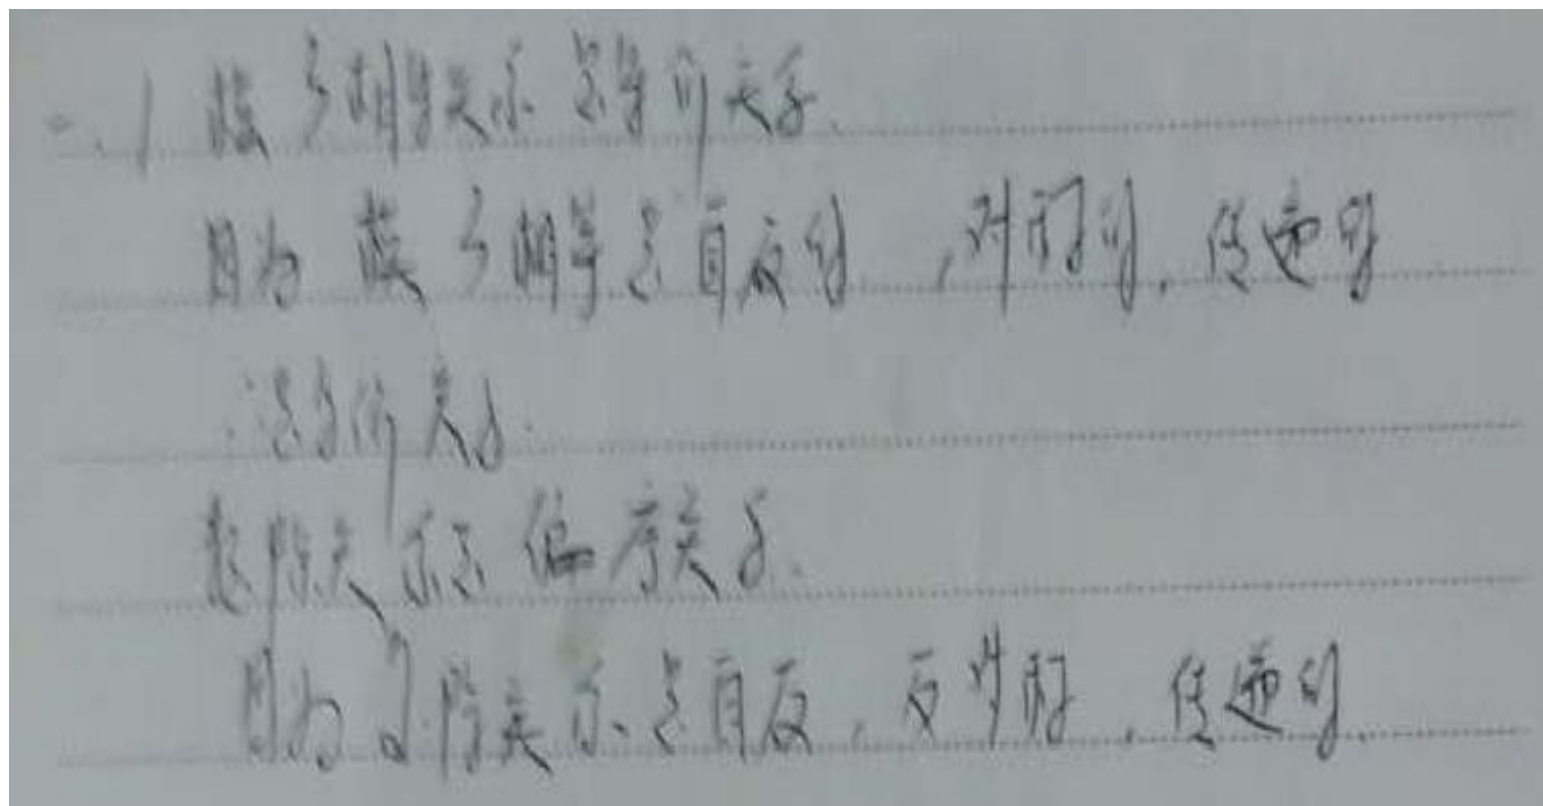 二. 1 模3相等关系是等价关系.
因为 模3相等是自反的,对称的,传递的
∴是等价关系.
整除关系是偏序关系.
因为 整除关系是自反,反对称,传递的.